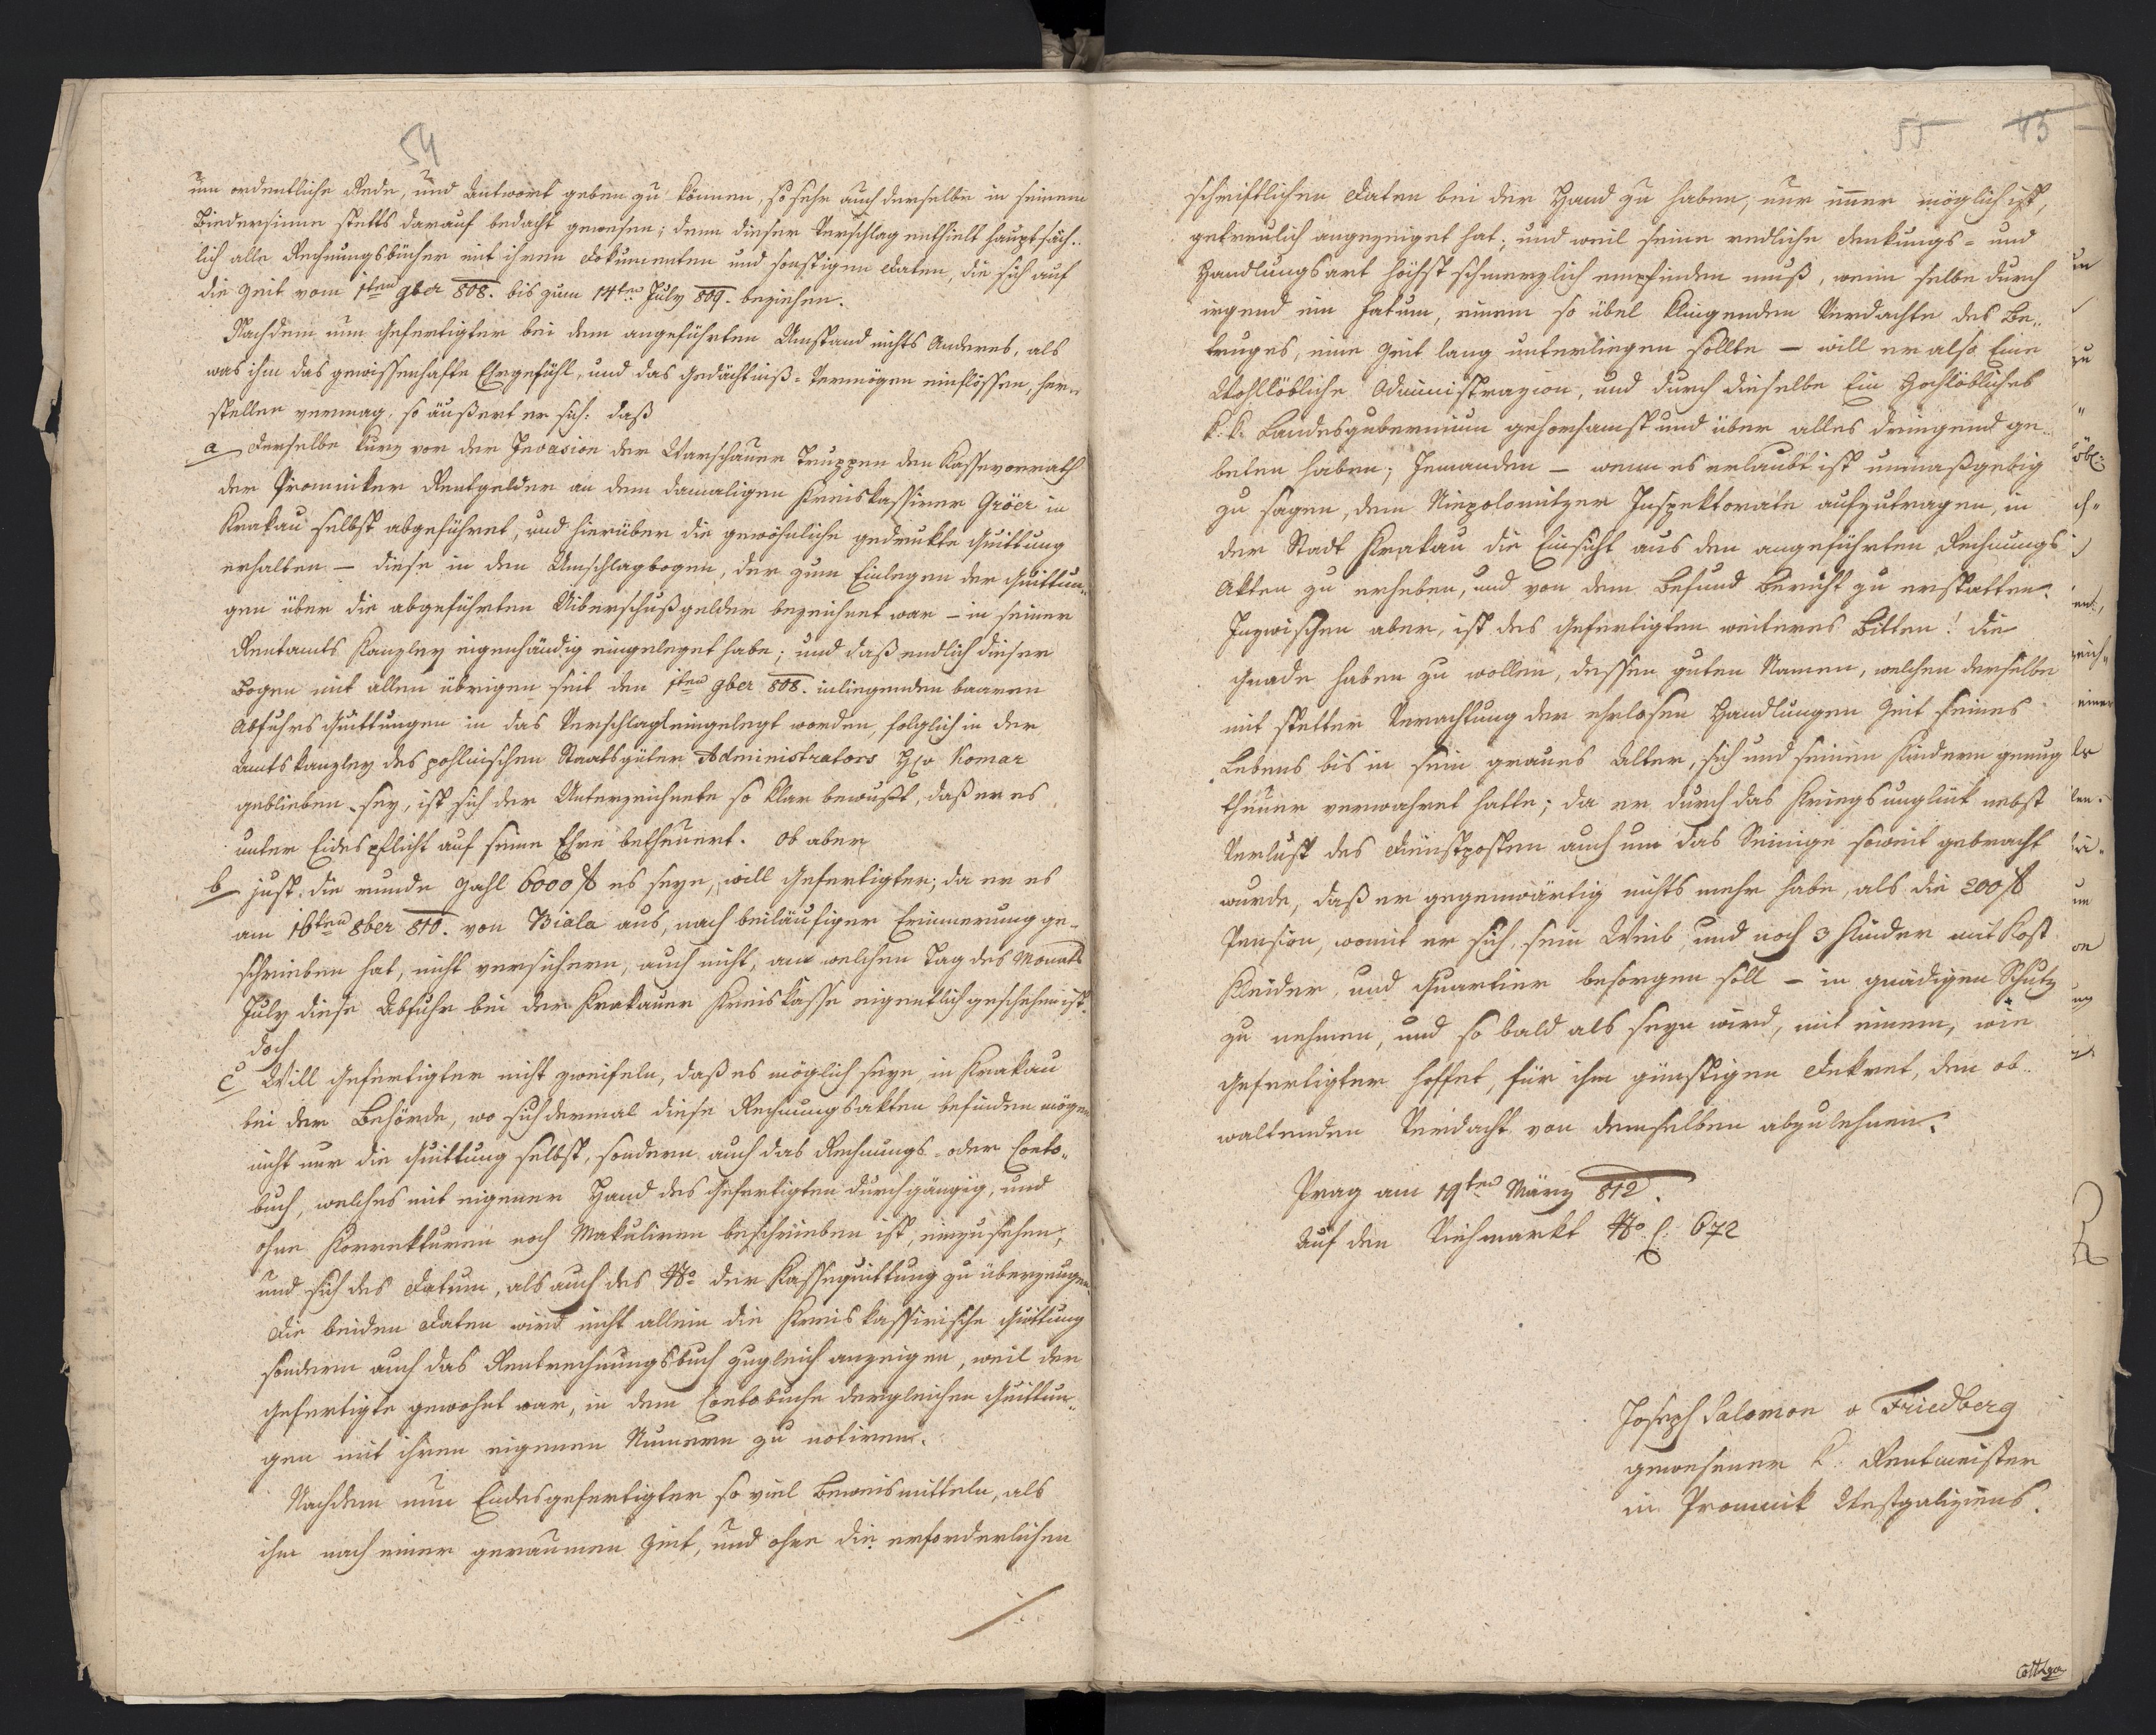 54
um ordentliche Rede, und Antwort geben zu können, so sehr auch derselbe in seinem
Biedersinne stetts darauf bedacht gewesen; denn dieser Verschlag enthielt hauptsäch„
lich alle Rechnungsbücher mit ihren Dokumenten und sonstigen Daten, die sich auf
die Zeit vom 1ten 9ber 808. bis zum 14ten July 809. beziehen.
Nachdem nun Gefertigter bei dem angeführten Umstand nichts Anderes, als
was ihm das gewissenhafte Ehrgefühl, und das Gedächtniß-Vermögen einflössen, her„
stellen vermag, so äußert er sich: daß
a Derselbe kurz vor der Invasion der Warschauer Truppen den Kassevorrath
der Promniker Rentgelder an dem damaligen Kreiskassirer Gröer in
Krakau selbst abgeführet, und hierüber die gewöhnliche gedrukte Quittung
erhalten – diese in den Umschlagbogen, der zum Einlegen der Quittun„
gen über die abgeführten Uiberschußgelder bezeichnet war – in seiner
Rentamts Kanzley eigenhändig eingeleget habe; und daß endlich dieser
Bogen mit allen übrigen seit den 1ten 9ber 808. inliegenden baaren
Abfuhrs Quittungen in das Verschlagl eingelegt worden, folglich in der
Amtskanzley des pohlnischen Staatsgüter Administrators H. v Komar
geblieben sey, ist sich der Unterzeichnete so klar bewußt, daß er es
unter Eidespflicht auf seine Ehre betheuert. Ob aber
b just die runde Zahl 6000 f es seye, will Gefertigter; da er es
am 16ten 8ber 810. von Biala aus, nach beiläufiger Erinnerung ge„
schrieben hat, nicht versichern, auch nicht, an welchen Tag des Monats
July diese Abfuhr bei der Krakauer Kreiskasse eigentlich geschehen ist.
doch
c Will Gefertigter nicht zweifeln, daß es möglich seye, in Krakau
bei der Behörde, wo sich dermal diese Rechnungsakten befinden mögen
nicht nur die Quittung selbst, sondern auch das Rechnungs- oder Conto„
buch, welches mit eigener Hand des Gefertigten durchgängig, und
ohne Korrekturen noch Makuliren beschrieben ist, einzusehen,
und sich des Datum, als auch des No der Kassequittung zu überzeugen.
Die beiden Daten wird nicht allein die Kreiskassirische Quittung
sondern auch das Rentrechnungsbuch zugleich anzeigen, weil der
Gefertigte gewohnt war, in dem Contobuche dergleichen Quittun„
gen mit ihren eigenen Numern zu notiren.
Nachdem nun Endesgefertigter so viel Beweismitteln, als
ihm nach einer geraumen Zeit, und ohne die erforderlichen
55
schriftlichen Daten bei der Hand zu haben, nur immer möglich ist,
getreulich angezeiget hat; und weil seine redliche Denkungs- und
Handlungsart höchst schmerzlich empfinden muß, wenn selbe durch
irgend ein Fatum, einem so übel klingenden Verdachte des Be„
truges, eine Zeit lang unterliegen sollte – will er also Eine
Wohllöbliche Administrazion, und durch dieselbe Ein Hochlöbliches
k. k. Landesgubernium gehorsamst und über alles dringend ge„
beten haben; Jemanden – wenn es erlaubt ist unmaßgebig
zu sagen, dem Niepolomitzer Inspektorate aufzutragen, in
der Stadt Krakau die Einsicht aus den angeführten Rechnungs
Akten zu erheben, und von dem Befund Bericht zu erstatten.
Inzwischen aber, ist des Gefertigten weiteres Bitten! die
Gnade haben zu wollen, dessen guten Namen, welchen derselbe
mit stetter Verachtung der ehrlosen Handlungen Zeit seines
Lebens bis in sein graues Alter, sich und seinen Kindern genug
theuer verwahret hatte; da er durch das Kriegsunglük nebst
Verlust des Dienstposten auch um das Seinige soweit gebracht
wurde, daß er gegenwärtig nichts mehr habe, als die 200 f
Pension, womit er sich, sein Weib, und noch 3 Kinder mit Kost
Kleider, und Quartier besorgen soll – in gnädigen Schutz
zu nehmen, und so bald als seyn wird, mit einem, wie
Gefertigter hoffet, für ihm günstigen Dekret, den ob„
waltenden Verdacht von demselben abzulehnen.
Prag am 19ten März 812.
Auf den Viehmarkt No. C. 672
Joseph Salomon v Friedberg
gewesener k. Rentmeister
in Promnik Westgaliziens.